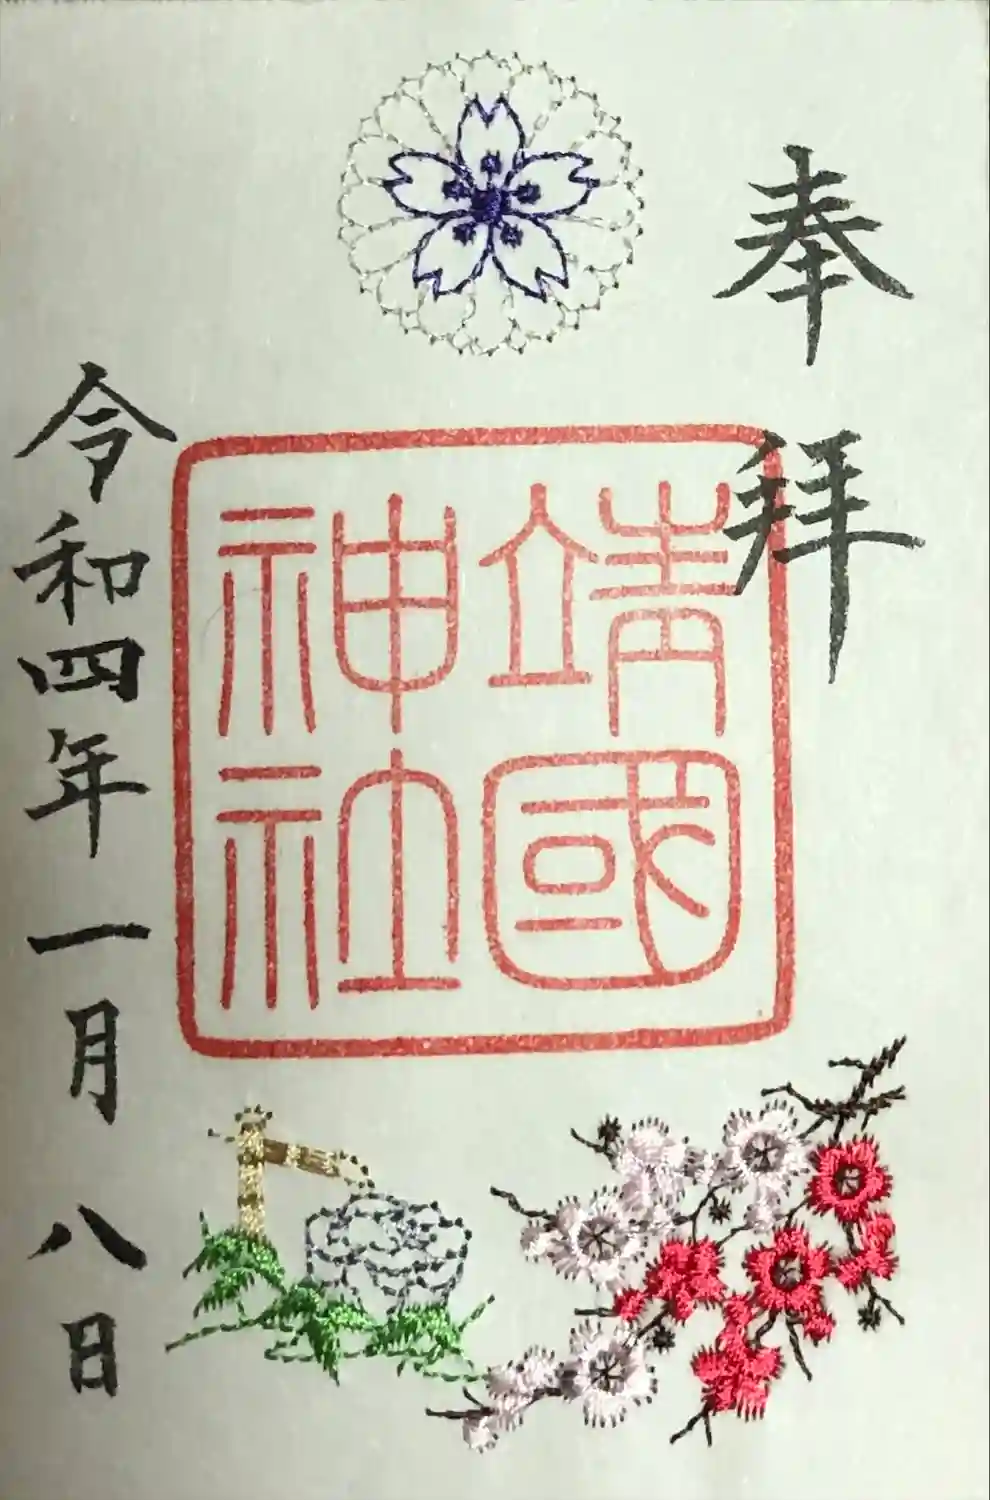 奉拝
靖國
神社
令和四年一月八日